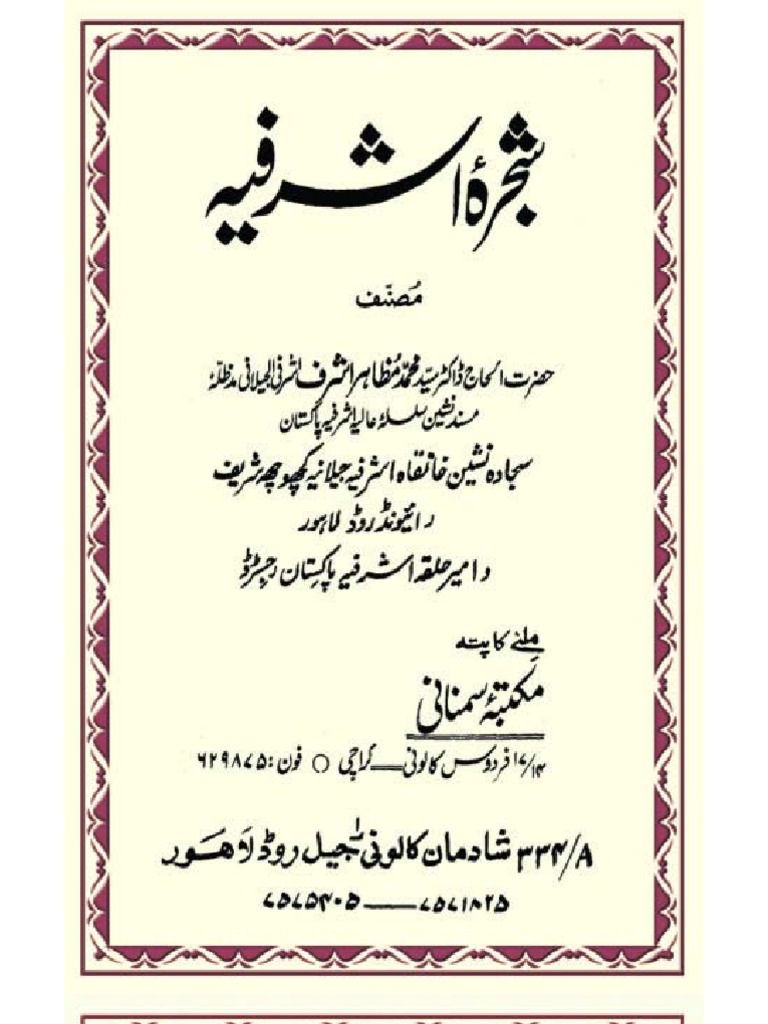 شجرۂ اشرفیہ
مُصنّف
حضرت الحاج ڈاکٹر سیّد محمّد مظاہر اشرف اشرفی الجیلانی مدظلہٗ
مسند نشین سلسلۂ عالیہ اشرفیہ پاکستان
سجادہ نشین خانقاہ اشرفیہ جیلانیہ کچھوچھہ شریف
رائیونڈ روڈ لاہور
و امیر حلقہ اشرفیہ پاکستان رجسٹرڈ
مِلنے کا پتہ
مکتبۂ سمنانی
۱۷/۱۴ فردوس کالونی — کراچی ○ فون: ۶۲۹۸۷۵
۳۳۴/A شادمان کالونی ۱ جیل روڈ لاهور
۷۵۷۵۴۰۵ — ۷۵۷۱۸۲۵